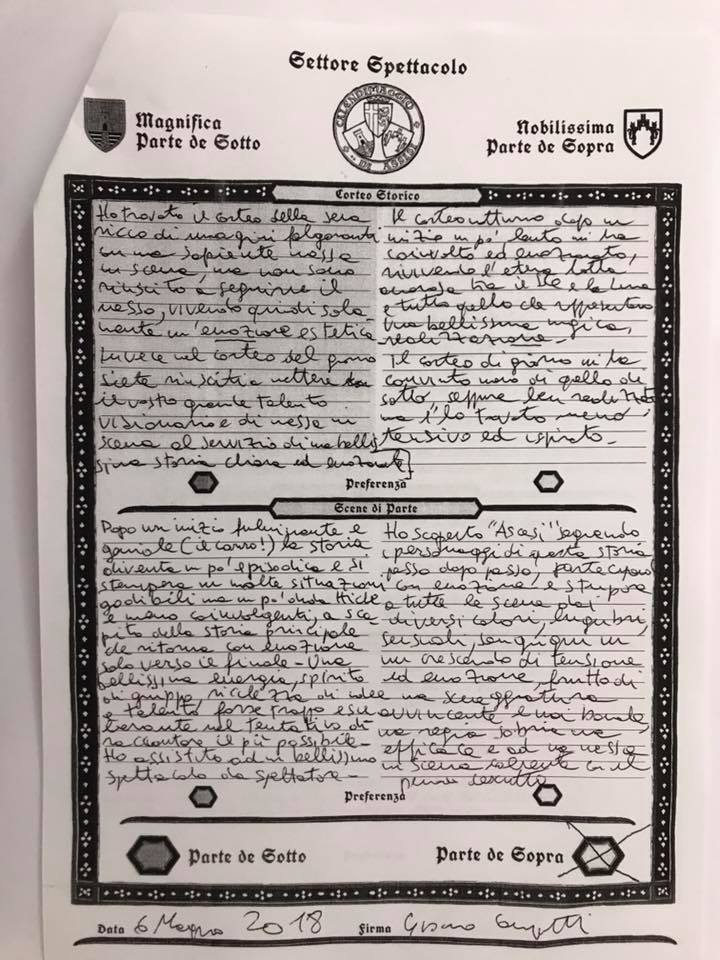 Settore Spettacolo
CALENDIMAGGIO
DI ASSISI
Magnifica
Parte de Sotto
Nobilissima
Parte de Sopra
Corteo Storico
Ho trovato il corteo della sera
ricco di immagini folgoranti
con una sapiente messa
in scena, ma non sono
riuscito a seguirne il
nesso, vivendo quindi sola
mente un'emozione estetica
Invece nel corteo del giorno
siete riusciti a mettere
il vostro grande talento
visionario e di messa in
scena al servizio di una bellis
sima storia chiara ed emozionante
Il corteo notturno dopo un
inizio un po' lento mi ha
coinvolto ed emozionato,
rivivendo l'eterna lotta
amorosa tra il Sole e la Luna
e tutto quello che rappresentano
Una bellissima magica,
realizzazione.
Il corteo di giorno mi ha
convinto meno di quello di
sotto, seppure ben realizzato
ma l'ho trovato meno
intensivo ed ispirato.
Preferenza
Scene di Parte
Dopo un inizio fulminante e
geniale (il carro!) la storia
diventa un po' episodica e si
stempera in molte situazioni
godibili ma un po'
e meno coinvolgenti, a sca
pito della storia principale
che ritorna con emozione
solo verso il finale - Una
bellissima energia, spirito
di gruppo, ricchezza di idee
e talento forse troppo esu
berante nel tentativo di
raccontare il più possibile -
Ho assistito ad un bellissimo
spettacolo da spettatore -
Ho scoperto "Ascesi" seguendo
i personaggi di questa storia
passo dopo passo, partecipando
con emozione e stupore
a tutte le scene dai
diversi colori, lugubri,
sensuali, sanguigni in
un crescendo di tensione
ed emozione, frutto di
una sceneggiatura
avvincente e mai banale,
una regia sobria ma
efficace e ad una messa
in scena coerente con il
Preferenza
Parte de Sotto
Parte de Sopra
Data 6 Maggio 2018 Firma